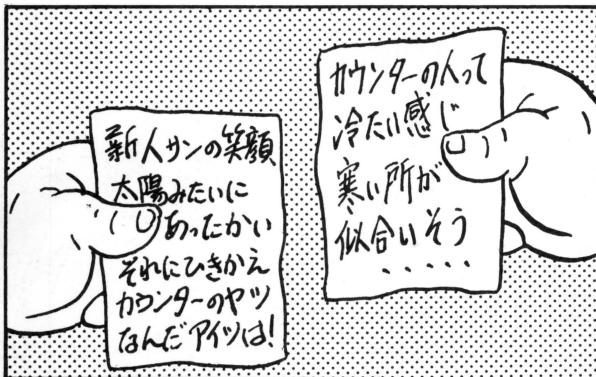 カウンターの人って
冷たい感じ
寒い所が
似合いそう
・・・・・
新人サンの笑顔
太陽みたいに
あったかい
それにひきかえ
カウンターのヤツ
なんだアイツは!